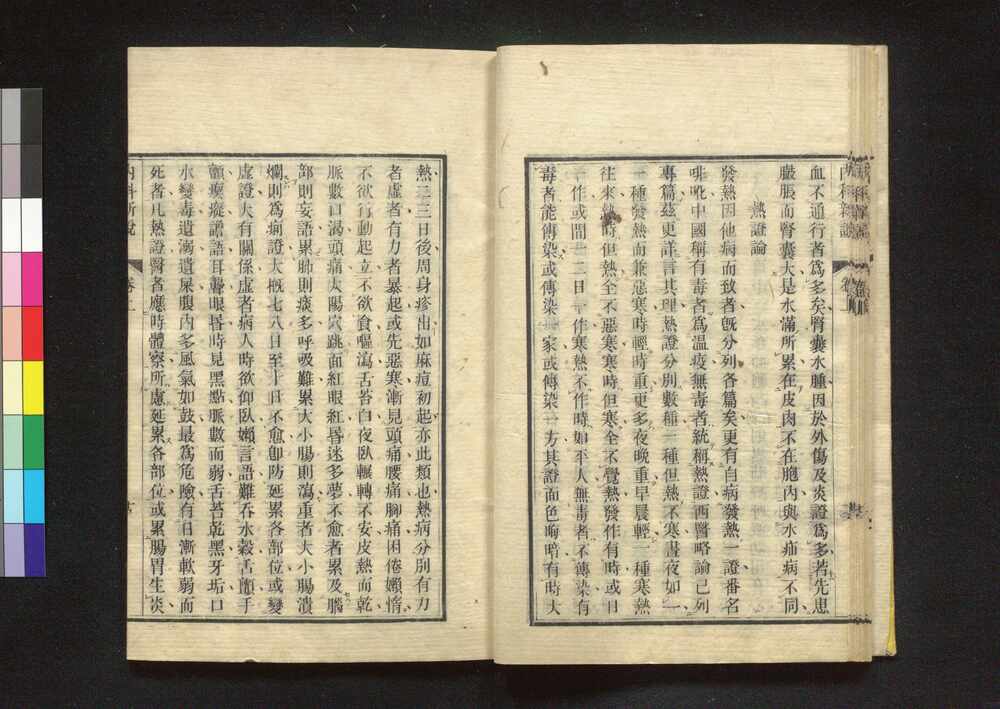 血不通行者爲多矣腎囊水腫因於外傷及炎證爲多若先患
臌脹而腎囊大是水滿所累在皮肉不在胞內與水疝病不同
熱證論
發熱因他病而致者旣分列各篇矣更有自病發熱一證番名
啡吡中國稱有毒者爲溫疫無毒者統稱熱證西醫略論已列
專篇茲更詳言其理熱證分別數種一種但熱不寒晝夜如一
一種發熱而兼惡寒時輕時重更多夜晚重早晨輕一種寒熱
往來熱時但熱全不惡寒寒時但寒全不覺熱發作有時或日
一作或間一二日一作寒熱不作時如平人無毒者不傳染有
毒者能傳染或傳染一家或傳染一方其證面色晦暗有時大
熱二三日後周身疹出如麻痘初起亦此類也熱病分別有力
者虛者有力者暴起或先惡寒漸見頭痛腰痛腳痛困倦嬾惰
不欲行動起立不欲食嘔瀉舌苔白夜臥輾轉不安皮熱而乾
脈數口渴頭痛太陽穴跳面紅眼紅昏迷多夢不愈者累及腦
部則妄語累肺則痰多呼吸難累大小腸則瀉重者大小腸潰
爛則爲痢證大概七八日至十日不愈卽防延累各部位或變
虛證大有關係虛者病人時欲仰臥嬾言語難吞水穀舌顫手
顫瘈瘲譫語耳聾眼昏時見黑點脈數而弱舌苔乾黑牙垢口
水變毒遺溺遺屎腹內多風氣如鼓最爲危險有日漸軟弱而
死者凡熱證醫者應時體察所慮延累各部位或累腸胃生炎
內科新說 卷上